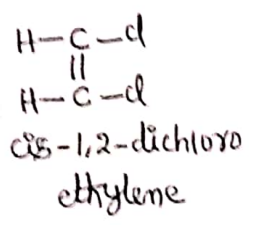 H-C-Cl
||
H-C-Cl
cis-1,2-dichloro
ethylene